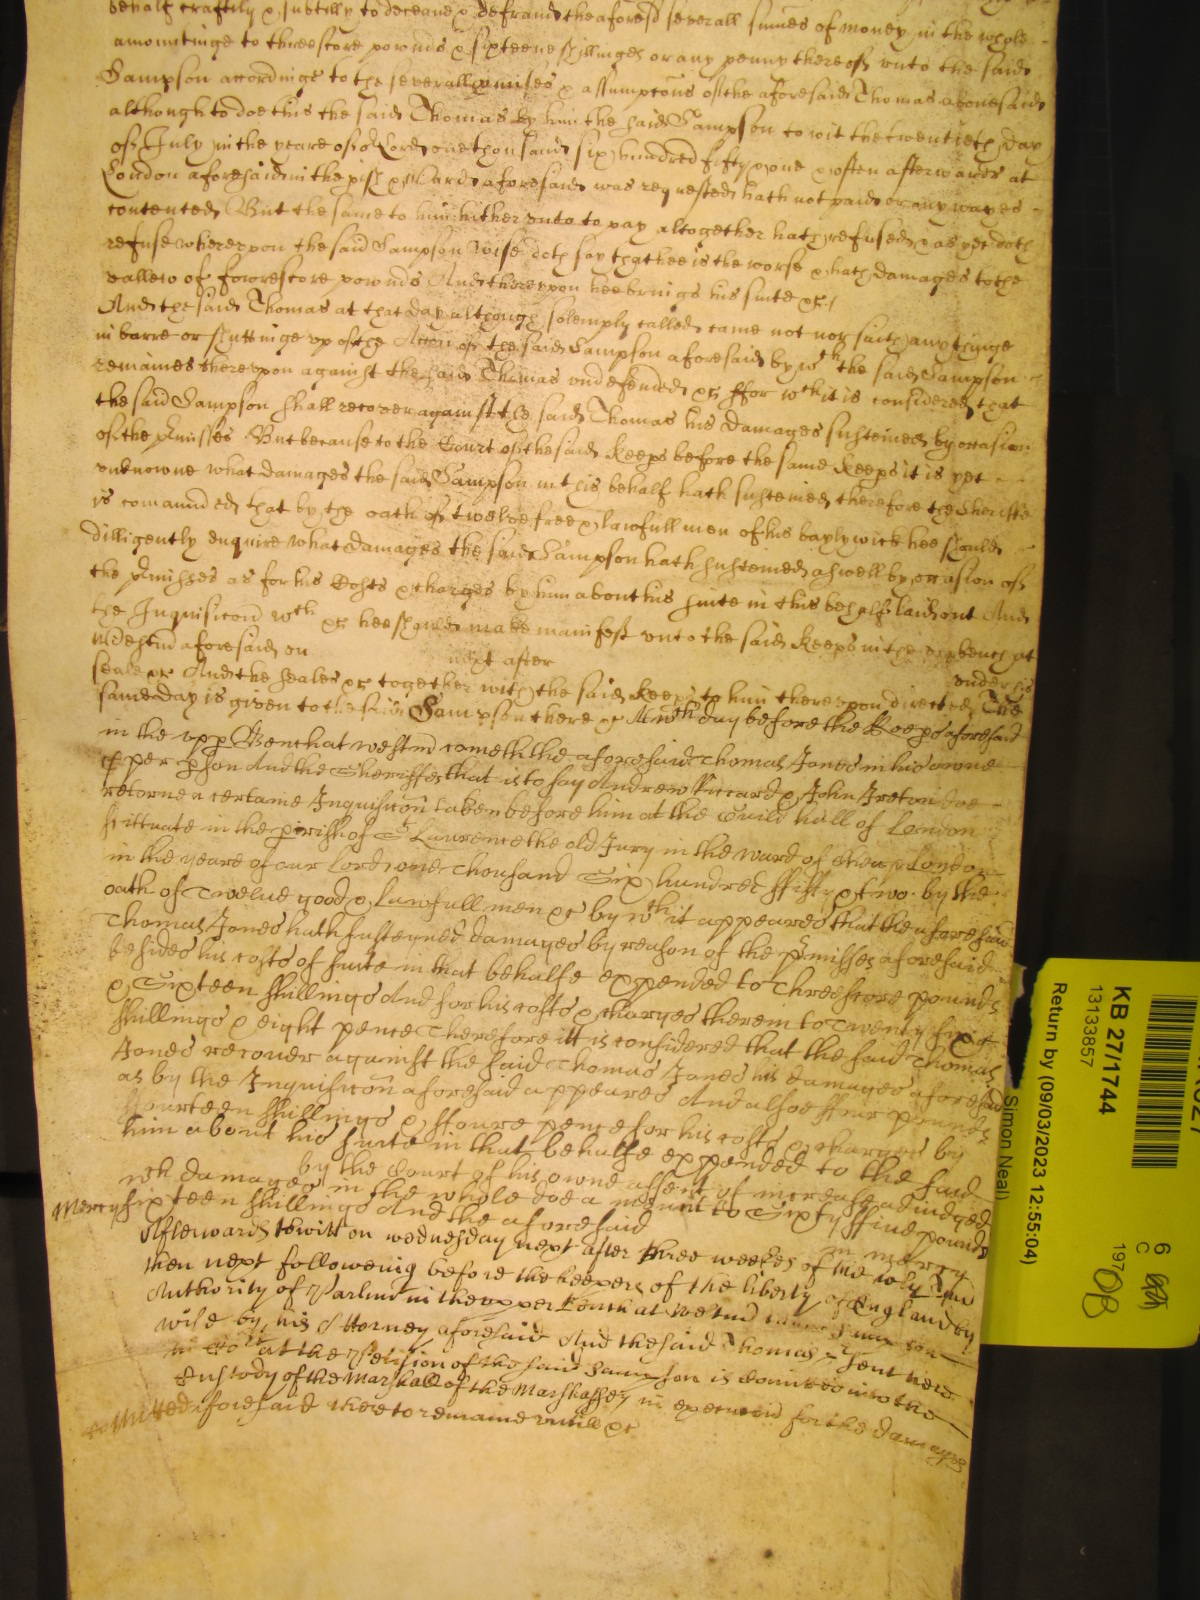 behalf craftily & subtilly to deceave & defraud the aforesd severall summes of money in the whole
amountinge to threescore pownds & sixteene shillinges or any penny thereof unto the said
Sampson accordinge to the severall pmises & assumptons of the aforesaid Thomas abovesaid
although to doe this the said Thomas by him the said Sampson to wit the twentieth day
of July in the yeare of or Lord one thousand six hundred fifty & one & often afterwards at
London aforesaid in the pish & Ward aforesaid was requested hath not paid or any wayes
contented But the same to him hitherunto to pay altogether hath refused & as yet doth
refuse whereupon the said Sampson Wise doth say that hee is the worse & hath damages to the
vallew of fowrescore pownds And thereupon hee brings his suite &c
And the said Thomas at that day although solemply called came not nor saith any thinge
in barre or shuttinge up of the Accon of the said Sampson aforesaid by wch the said Sampson
remaines thereupon against the said Thomas undefended &c ffor wch it is considered that
the said Sampson shall recover against the said Thomas his damages susteined by occasion
of the pmisses But because to the Court of the said Keeps before the same Keeps it is yet
unknowne what damages the said Sampson in this behalf hath susteined therefore the Sheriffs
is comaunded that by the oath of twelve free & lawfull men of his baylywick hee should
dilligently enquire what damages the said Sampson hath susteined aswell by occasion of
the pmisses as for his Costs & charges by him about his suite in this behalf laid out And
the Inquisicon wch &c hee should make manifest unto the said Keeps in the upp bench at
Westm aforesaid on next after under his
seale &c And the seales &c together with the said Keeps to him thereupon directed The
same day is given to the said Sampson there &c At wch day before the Keeps aforesaid
in the upp Bench at westm cometh the aforesaid Thomas Jones in his owne
pper pson And the Sheriffes that is to say Andrew Riccard & John Ireton doe
retorne a certaine Inquisicon taken before him at the Guild hall of London
scittuate in the pish of St Laurence the old Jury in the ward of Cheap London
in the yeare of our Lord one Thousand Six hundred ffifty & two by the
oath of Twelve good & lawfull men &c by wch it appeares that the aforesaid
Thomas Jones hath susteyned damages by reason of the pmisses aforesaid
besides his costs of suite in that behalfe exppended to Threescore pounds
& Sixteen shillings And for his costs & charges therein to Twenty six
shillings & eight pence Therefore itt is considered that the said Thomas
Jones recover against the said Thomas Jones his damages aforesaid
as by the Inquisicon aforesaid appeares And alsoe ffour pounds
ffourteen shillings & ffoure pence for his costs & charges by
him about his suite in that behalfe exppended to the said
by the Court of his owne assent of increase adiudged
wch damages in the whole doe amount to Sixty ffive pounds
Mercy sixteen shillings And the aforesaid in mercy
Afterwards towitt on wednesday next after three weekes of the holy Trin
then next following before the keepers of the liberty of England by
Authority of Parlimt in the upper Bench at westmd came Sampson
wise by his Attorney aforesaid And the said Thomas psent here
in Cort at the Petision of the said Sampson is Comitted into the
Custody of the Marshall of the Marshallsey in execucon for the damages
Comitted aforesaid there to remaine untill &c
KB 27/1744
13133857
Return by (09/03/2023 12:55:04)
Simon Neal)
6
C
197